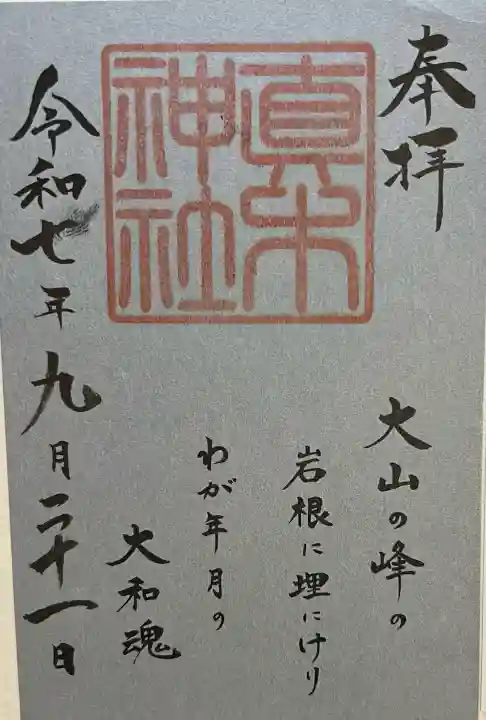 奉拝
真木神社
大山の峰の
岩根に埋にけり
わが年月の
大和魂
令和七年九月二十一日